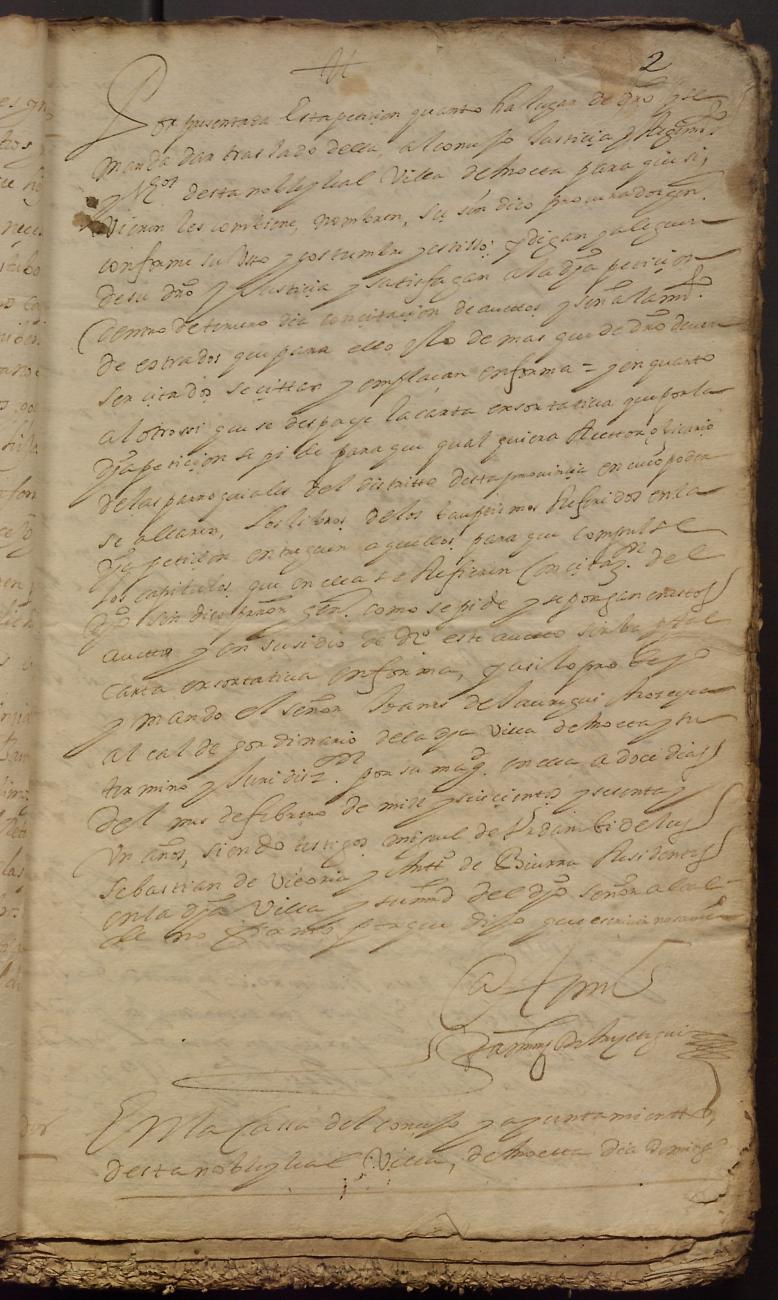 2
Por presentada Esta peticion quanto ha lugar de dro y se
manda dar traslado della, al conçejo Justicia y Regimto
y Vos desta noble y leal Villa de para que si
Vieren les combiene, nombren, su sindico procurador gen.
conforme su Uso y costumbre y estillo: y digan y aleguen
de su dro y Justicia y satisfagan a la dha peticion
dentro de terçero dia con citacion de auctos y señalamto
de estrados que para ello y lo demas que de dro deuen
ser citados se cittan y emplaçan en forma = y en quanto
al otrossi que se despage la carta exsortatiua que por la
dha peticion se pide para que qual quiera Rector o Vicario
de las parroquiales del distritto desta prouinçia en cuio poder
se allaren, los libros de los bauptismos Referidos en la
dha petiçion entreguen aquellos para que compulse
los capitulos que en ella se Refieren con citaçon del
dho sindico gen. como se pide y se pongan en estos
auttos y en susidio de dro este autto sirba y tal
carta exsortatiua en forma, y asi lo probeyo
y mando el señor de Jauregui
alcalde hordinario de la dha Villa de y su
termino y Juridizon por su magd. en ella a doce dias
del mes de febrero de mill y seiscientos y sesenta y
Un años, siendo testigos miguel de
Sebastian de Vicoria y Anto de Residentes
en la dha Villa y su md del dho señor alcal-
de no firmo porque dijo que escriuir no sauia
Ante mi
de
En la Cassa del conçejo y ayuntamiento
desta noble y leal Villa, de dia domingo